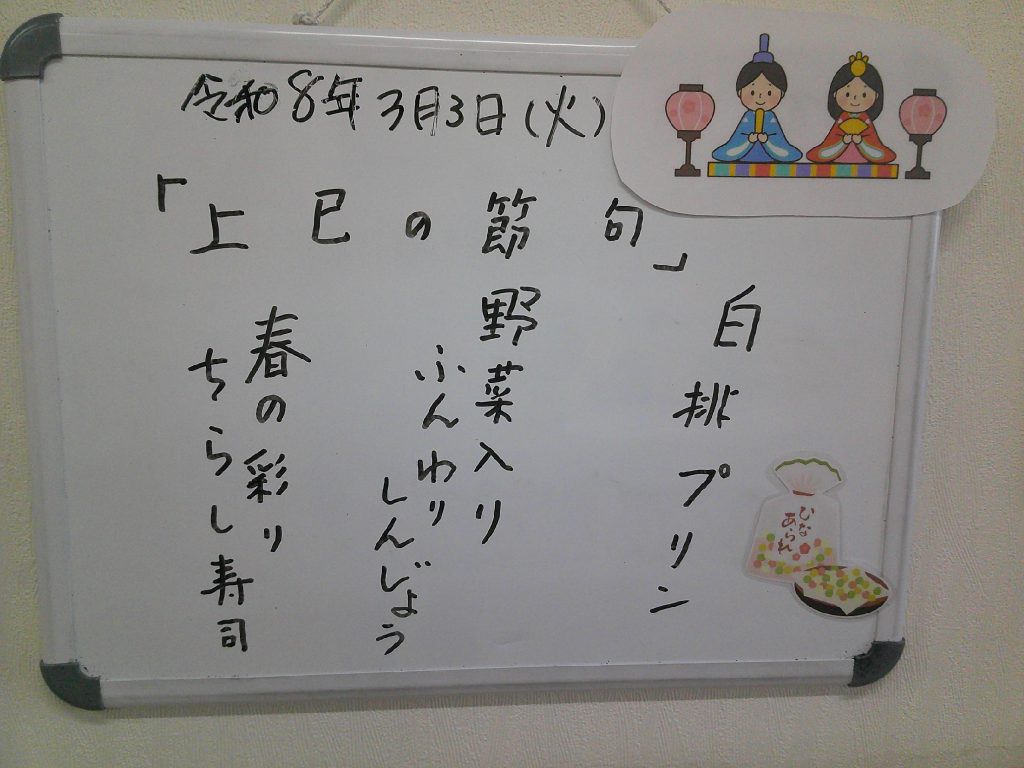 令和8年 3月3日(火)
「上巳の節句」
白桃プリン
野菜入り
ふんわり
しんじょう
春の彩り
ちらし寿司
ひな
あられ